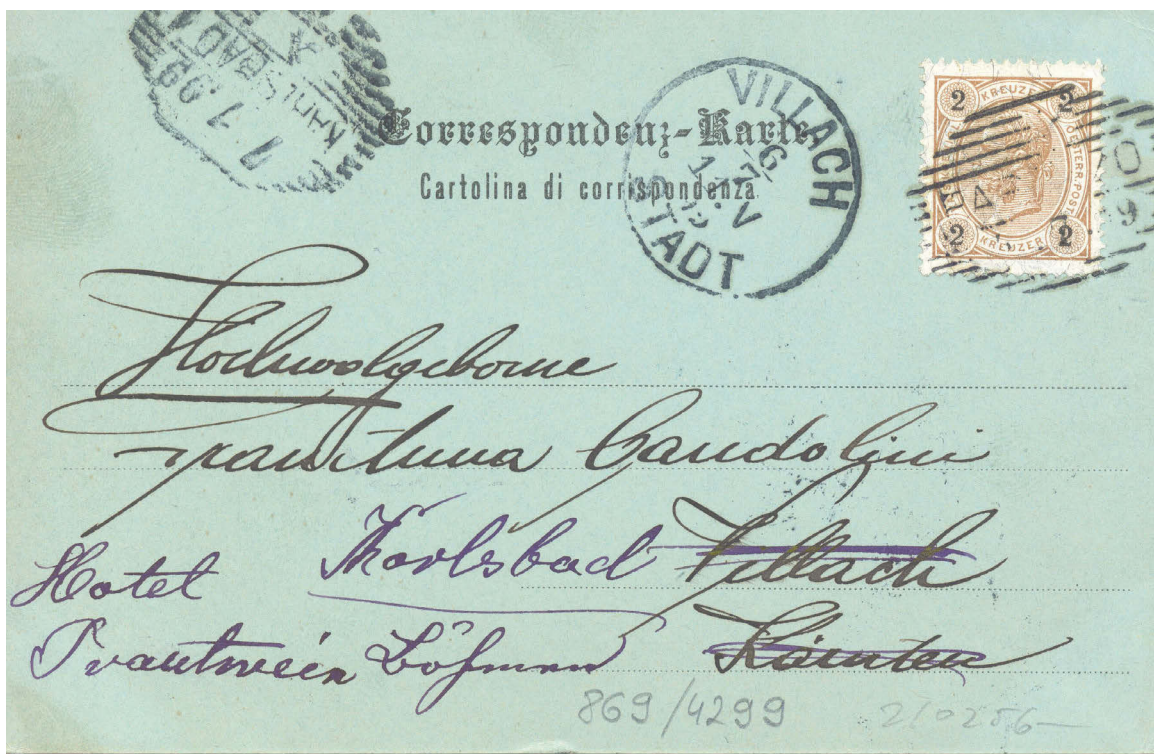 KARLSBAD
7.7.99
Correspondenz-Karte
Cartolina di corrispondenza
VILLACH
STADT
KREUZER
2 2
OESTERR. POST
2 2
KREUZER
Hochwolgeborne
Frau Anna Candolini
Hotel Karlsbad Villach
Trautwein Böhmen Kärnten
869/4299 210256-